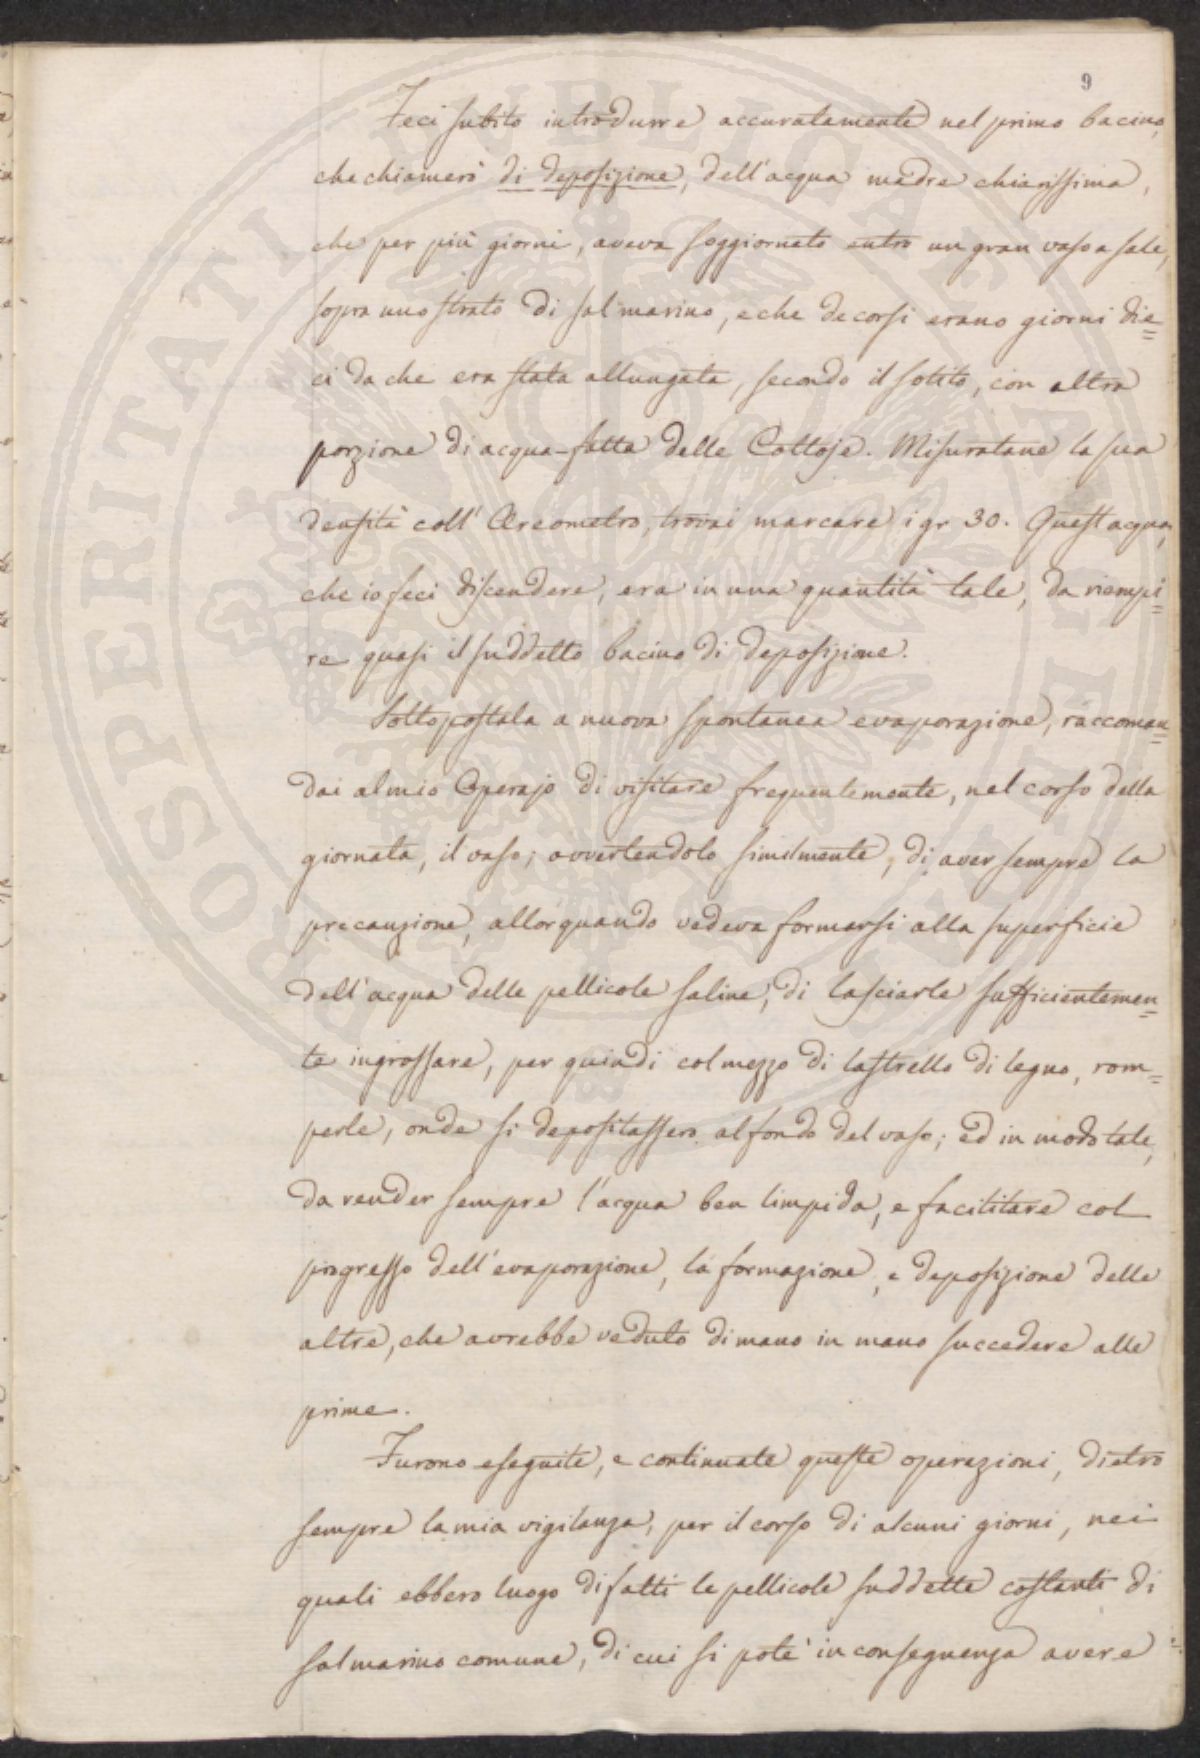 9
Feci subito introdurre accuratamente nel primo bacino,
che chiamerò di deposizione, dell'acqua madre chiarissima,
che per più giorni, aveva soggiornato entro un gran vaso a sale,
sopra uno strato di sal marino, e che decorsi erano giorni die=
ci da che era stata allungata, secondo il solito, con altra
porzione di acqua-fatta delle Cottoje. Misuratane la sua
densità coll'Areometro, trovai marcare i gr. 30. Quest'acqua,
che io feci discendere, era in una quantità tale, da riempi=
re quasi il suddetto bacino di deposizione.
Sottopostala a nuova spontanea evaporazione, raccoman=
dai al mio Operajo di visitare frequentemente, nel corso della
giornata, il vaso; avvertendolo similmente, di aver sempre la
precauzione, allorquando vedeva formarsi alla superficie
dell'acqua delle pellicole saline, di lasciarle sufficientemen=
te ingrossare, per quindi col mezzo di lastrello di legno, rom=
perle, onde si depositassero al fondo del vaso; ed in modo tale,
da render sempre l'acqua ben limpida, e facilitare col
progresso dell'evaporazione, la formazione, e deposizione delle
altre, che avrebbe veduto di mano in mano succedere alle
prime.
Furono eseguite, e continuate queste operazioni, dietro
sempre la mia vigilanza, per il corso di alcuni giorni, nei
quali ebbero luogo di fatti le pellicole suddette costanti di
sal marino comune, di cui si potè in conseguenza avere
PROSPERITATI PVBLICAE